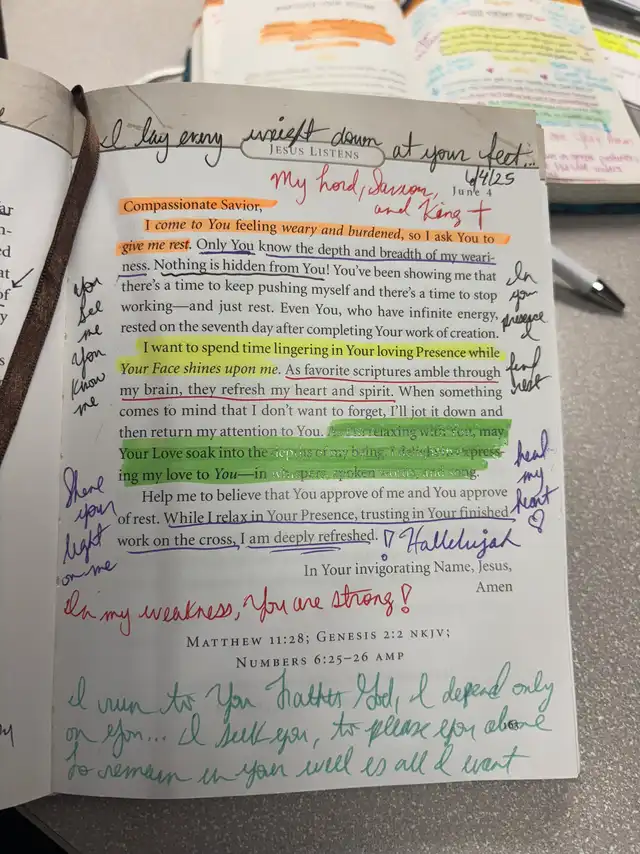 I lay every weight down at your feet...
JESUS LISTENS
6/4/25
My Lord, Savior,
and King
June 4
Compassionate Savior,
I come to You feeling weary and burdened, so I ask You to
give me rest. Only You know the depth and breadth of my weari-
ness. Nothing is hidden from You! You've been showing me that
there's a time to keep pushing myself and there's a time to stop
working—and just rest. Even You, who have infinite energy,
rested on the seventh day after completing Your work of creation.
I want to spend time lingering in Your loving Presence while
Your Face shines upon me. As favorite scriptures amble through
my brain, they refresh my heart and spirit. When something
comes to mind that I don't want to forget, I'll jot it down and
then return my attention to You. relaxing with You, may
Your Love soak into the depths of my being. express-
ing my love to You—in whispers, spoken song.
Help me to believe that You approve of me and You approve
of rest. While I relax in Your Presence, trusting in Your finished
work on the cross, I am deeply refreshed. ! Hallelujah
In Your invigorating Name, Jesus,
Amen
You
see
me
You
know
me
In
your
presence
I
find
rest
Shine
your
light
on me
heal
my
heart
In my weakness, You are strong!
MATTHEW 11:28; GENESIS 2:2 NKJV;
NUMBERS 6:25–26 AMP
I run to You Father God, I depend only
on You... I seek you, to please you alone
163
To remain in your will is all I want